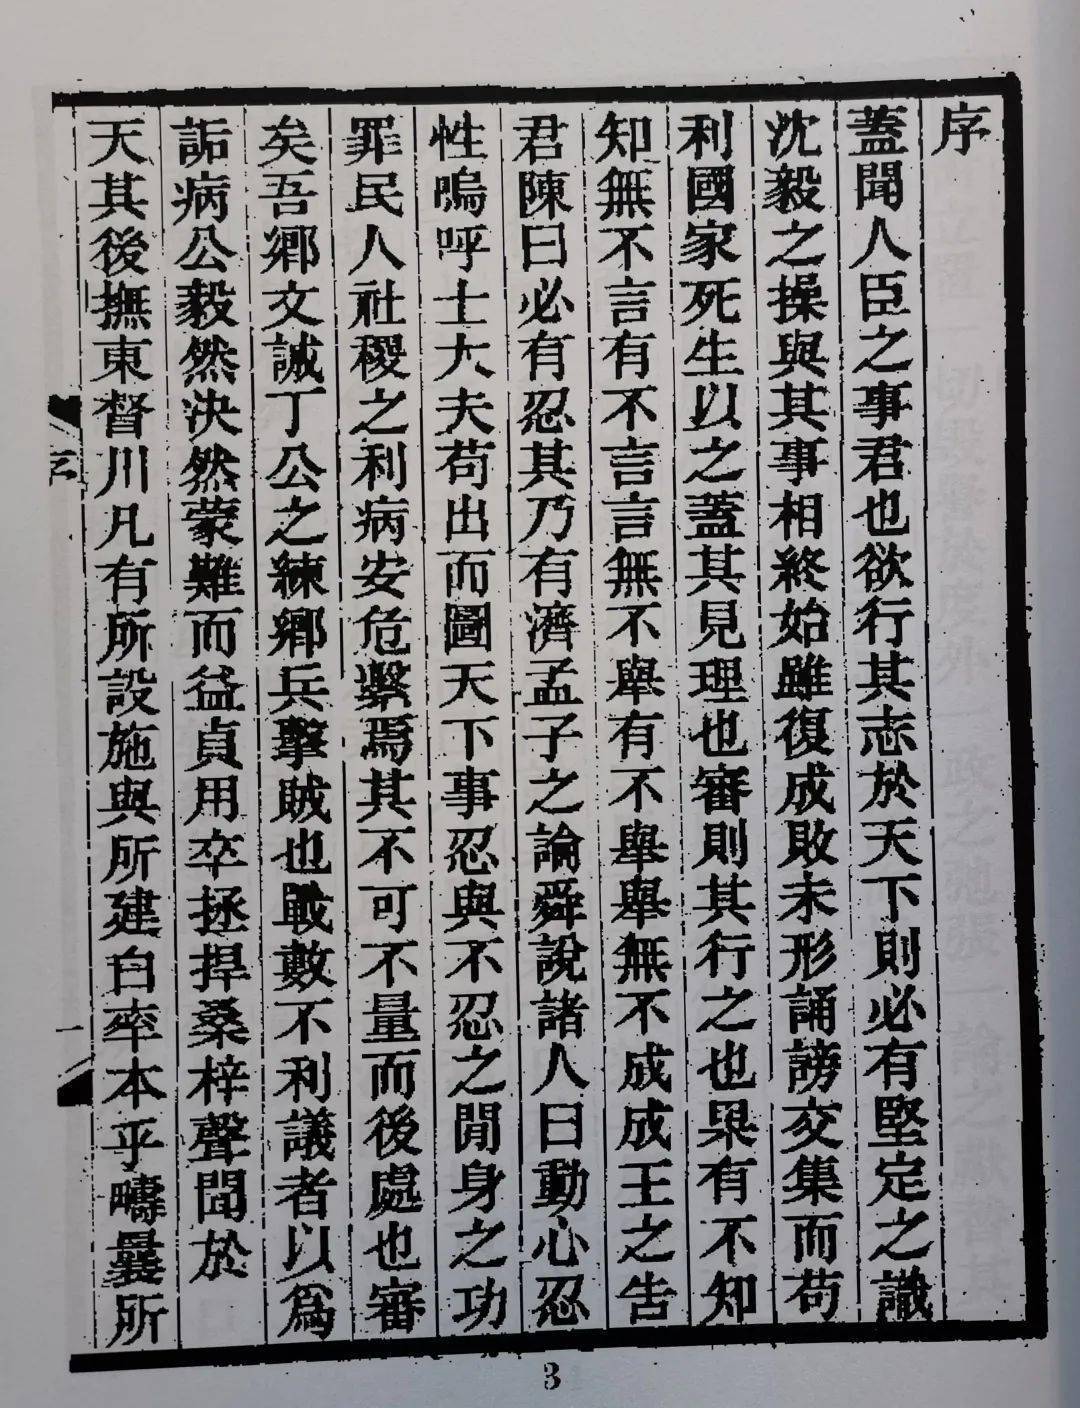 序
蓋聞人臣之事君也欲行其志於天下則必有堅定之識
沈毅之操與其事相終始雖復成敗未形誦謗交集而苟
利國家死生以之蓋其見理也審則其行之也果有不知
知無不言有不言言無不舉有不舉舉無不成成王之告
君陳曰必有忍其乃有濟孟子之論舜說諸人曰動心忍
性嗚呼士大夫苟出而圖天下事忍與不忍之閒身之功
罪民人社稷之利病安危繫焉其不可不量而後處也審
矣吾鄉文誠丁公之練鄉兵擊賊也戰數不利議者以爲
詬病公毅然決然蒙難而益貞用卒拯捍桑梓聲聞於
天其後撫東督川凡有所設施與所建白率本乎疇曩所
序
一
3